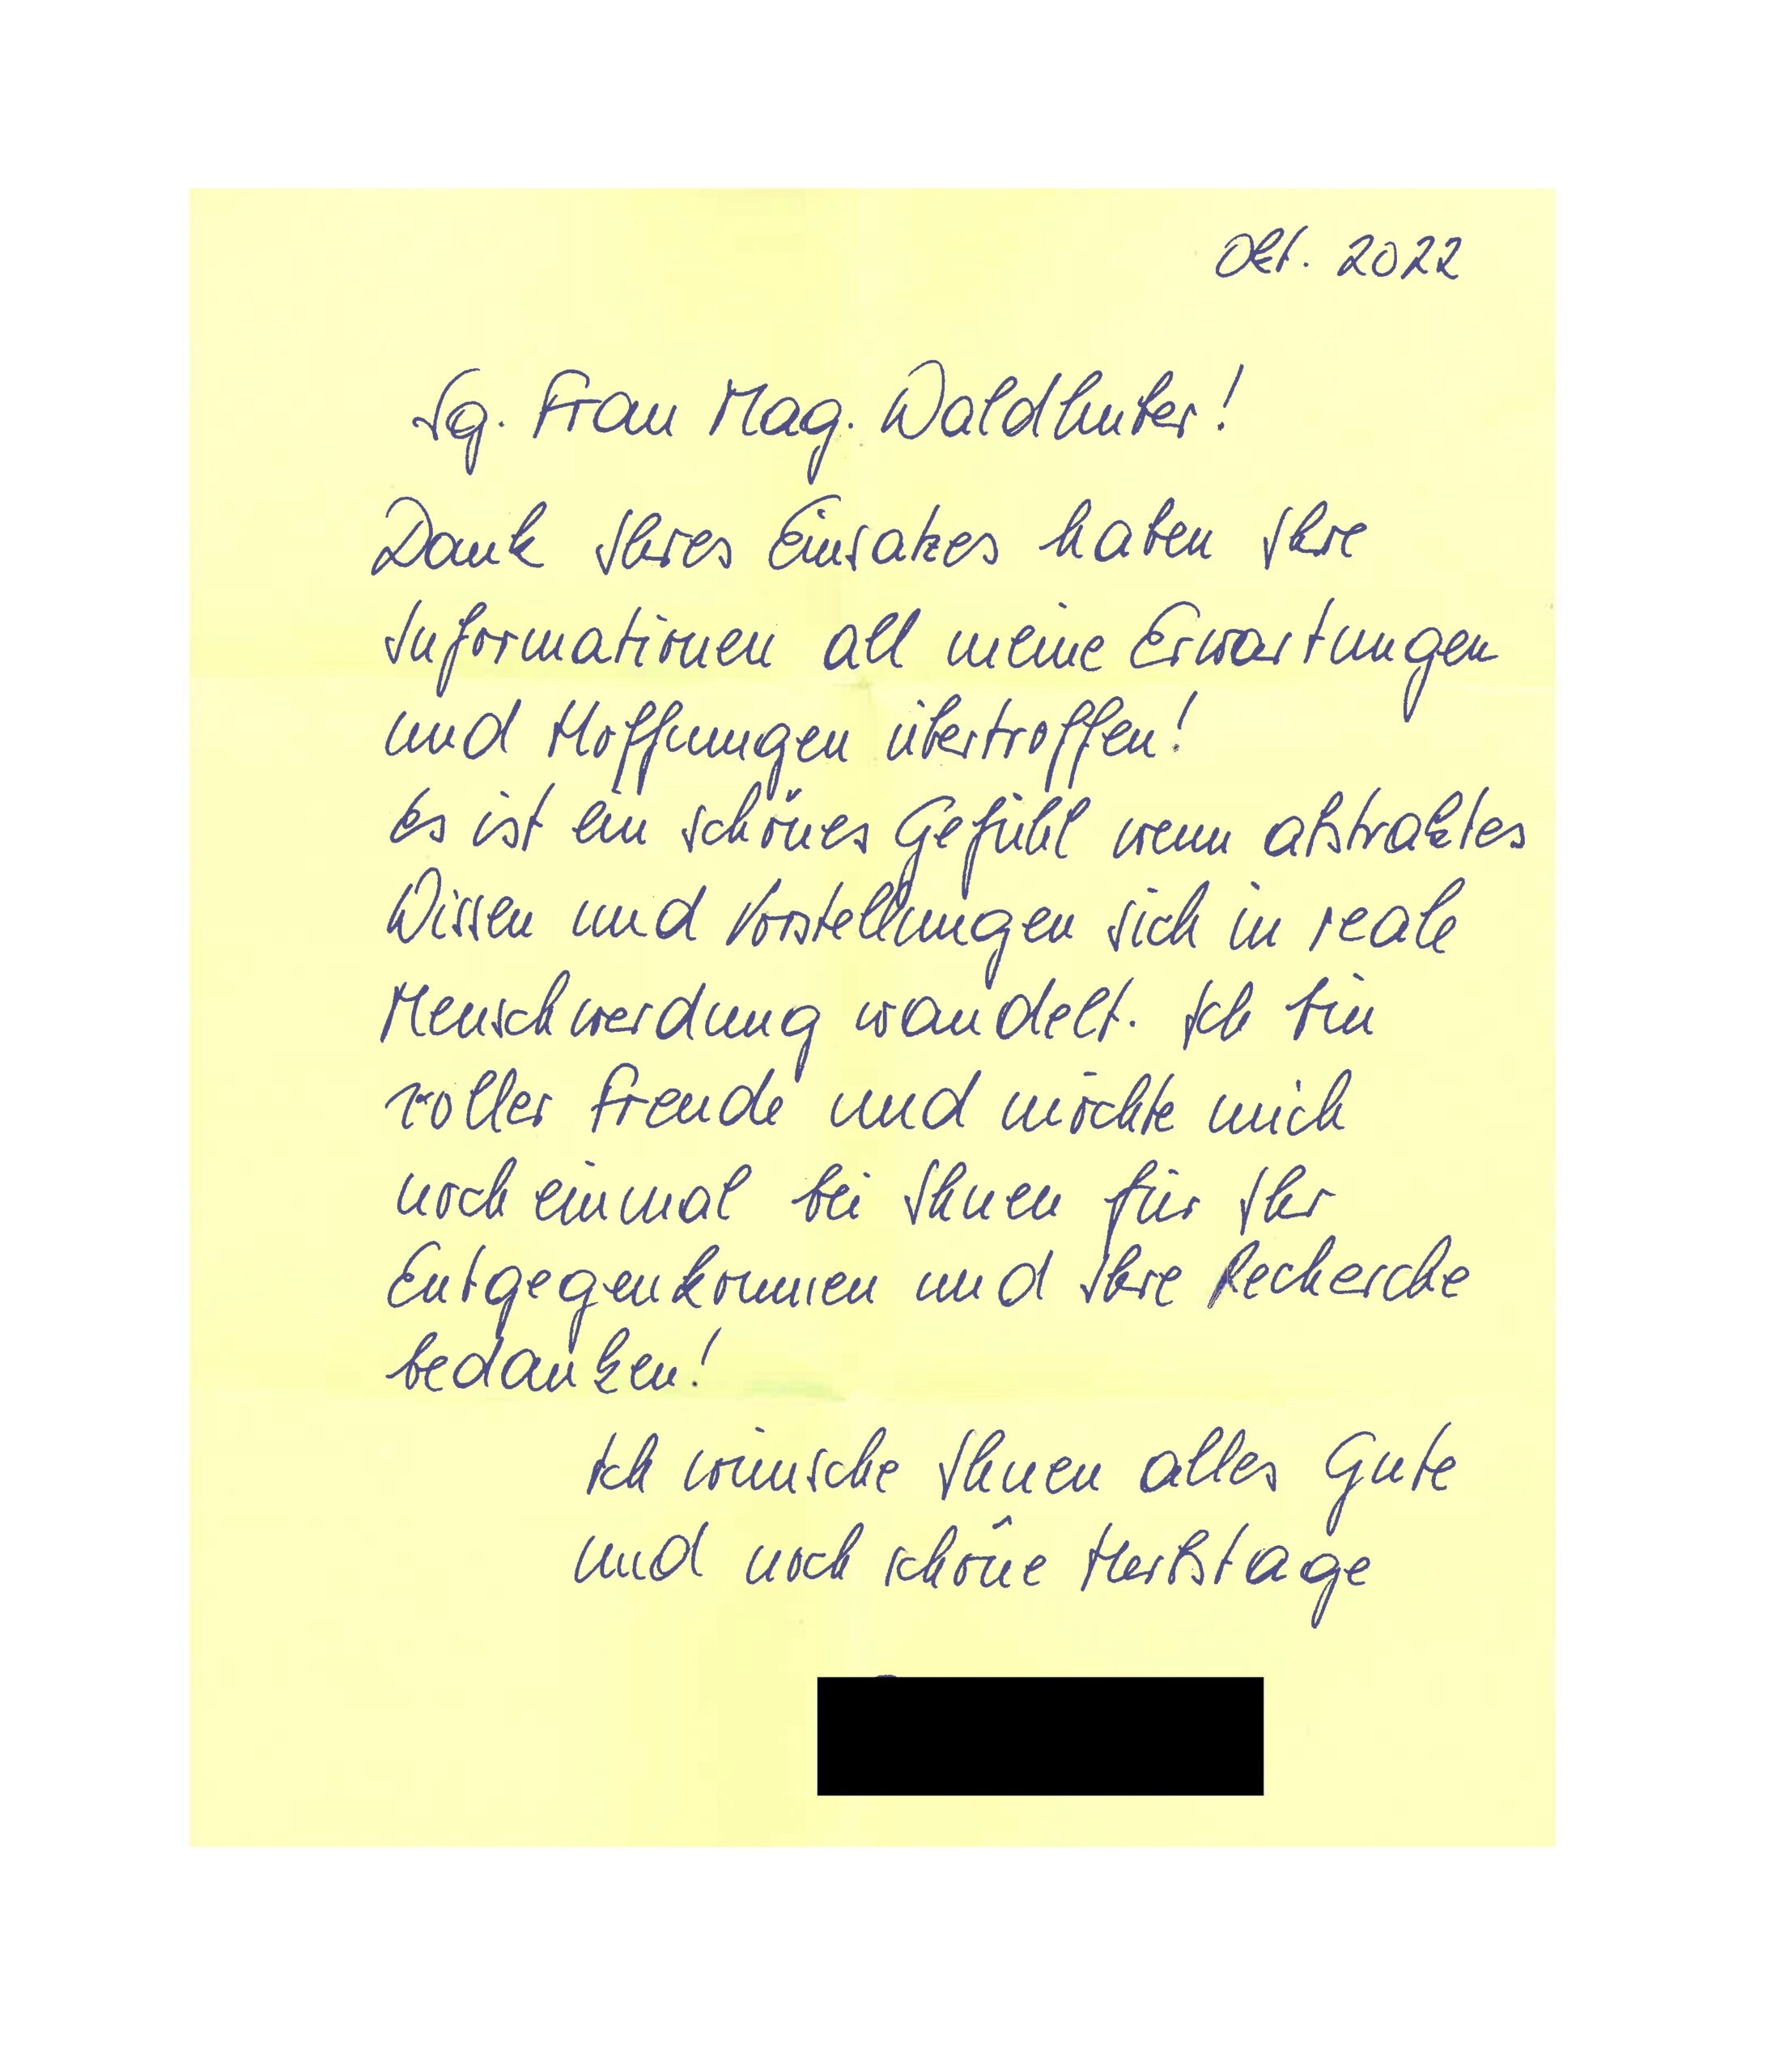 Okt. 2022
Sg. Frau Mag. Waldhuber!
Dank Ihres Einsatzes haben Ihre
Informationen all meine Erwartungen
und Hoffnungen übertroffen!
Es ist ein schönes Gefühl wenn abstraktes
Wissen und Vorstellungen sich in reale
Menschwerdung wandelt. Ich bin
voller Freude und möchte mich
noch einmal bei Ihnen für Ihr
Entgegenkommen und Ihre Recherche
bedanken!
Ich wünsche Ihnen alles Gute
und noch schöne Herbstage